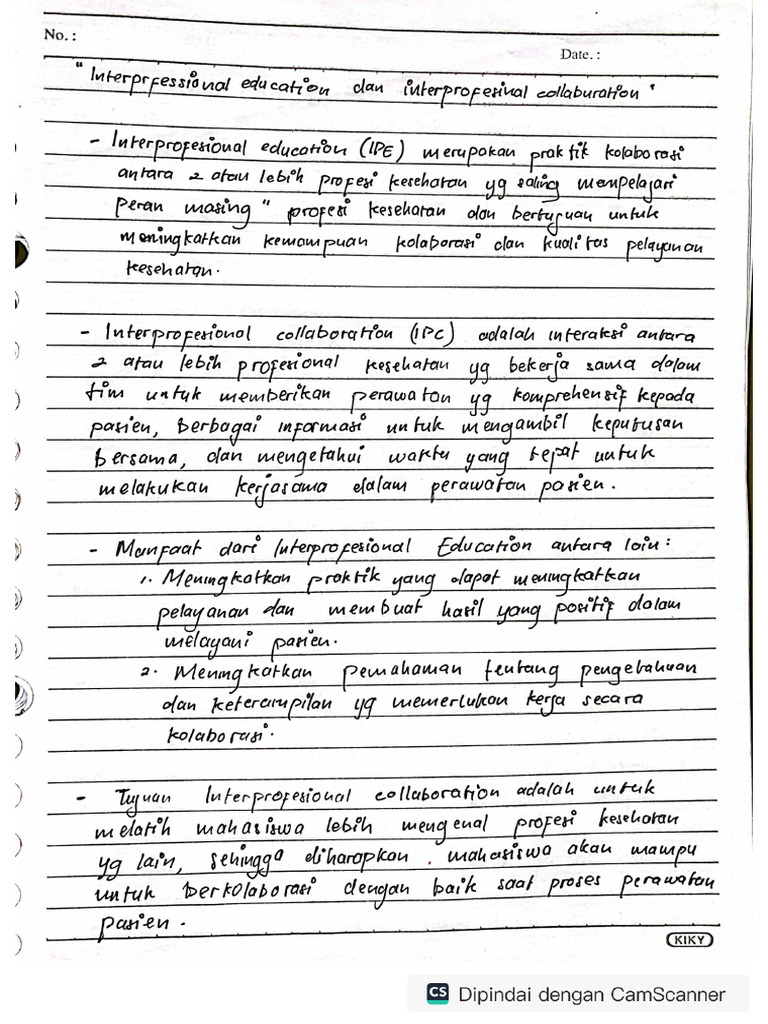 No. :
Date. :
"Interprfessional education dan interprofesinal collaburation"
- Interprofesional education (IPE) merupakan praktik kolaborasi
antara 2 atau lebih profesi kesehatan yg saling mempelajari
peran masing" profesi kesehatan dan bertujuan untuk
meningkatkan kemampuan kolaborasi dan kualitas pelayanan
kesehatan.
- Interprofesional collaboration (IPC) adalah interaksi antara
2 atau lebih profesional kesehatan yg bekerja sama dalam
tim untuk memberikan perawatan yg komprehensif kepada
pasien, berbagai informasi untuk mengambil keputusan
bersama, dan mengetahui waktu yang tepat untuk
melakukan kerjasama dalam perawatan pasien.
- Manfaat dari Interprofesional Education antara lain :
1. Meningkatkan praktik yang dapat meningkatkan
pelayanan dan membuat hasil yang positif dalam
melayani pasien.
2. Meningkatkan pemahaman tentang pengetahuan
dan keterampilan yg memerlukan kerja secara
kolaborasi.
- Tujuan Interprofesional collaboration adalah untuk
melatih mahasiswa lebih mengenal profesi kesehatan
yg lain, sehingga diharapkan mahasiswa akan mampu
untuk berkolaborasi dengan baik saat proses perawatan
pasien.
KIKY
CS Dipindai dengan CamScanner